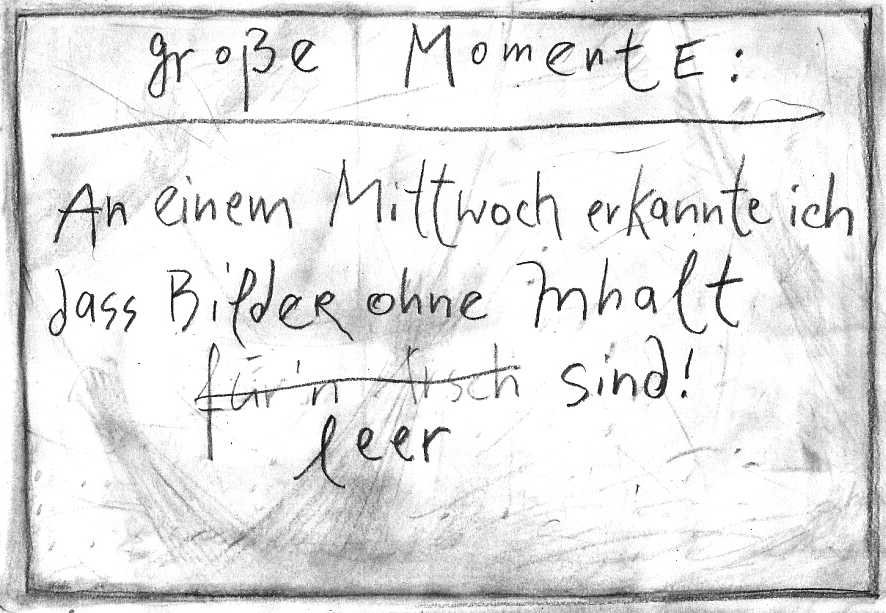 große MomentE:
An einem Mittwoch erkannte ich
dass BildeR ohne Inhalt
für'n Arsch sind!
leer